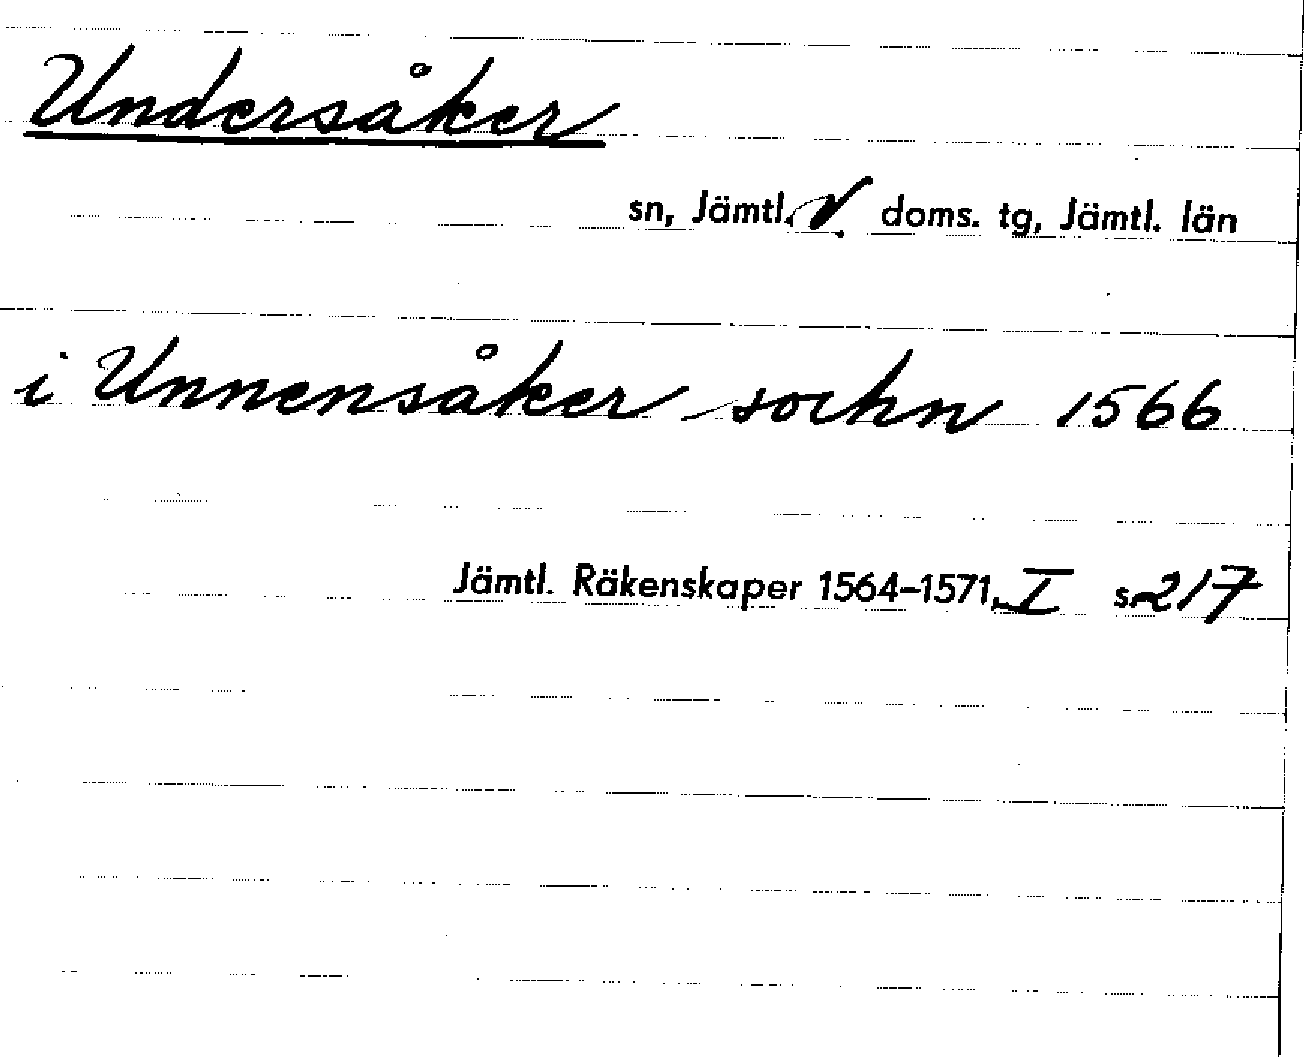 Undersåker
sn, Jämtl. V. doms. tg, Jämtl. län
i Unnensåker sochn 1566
Jämtl. Räkenskaper 1564–1571, I s. 217